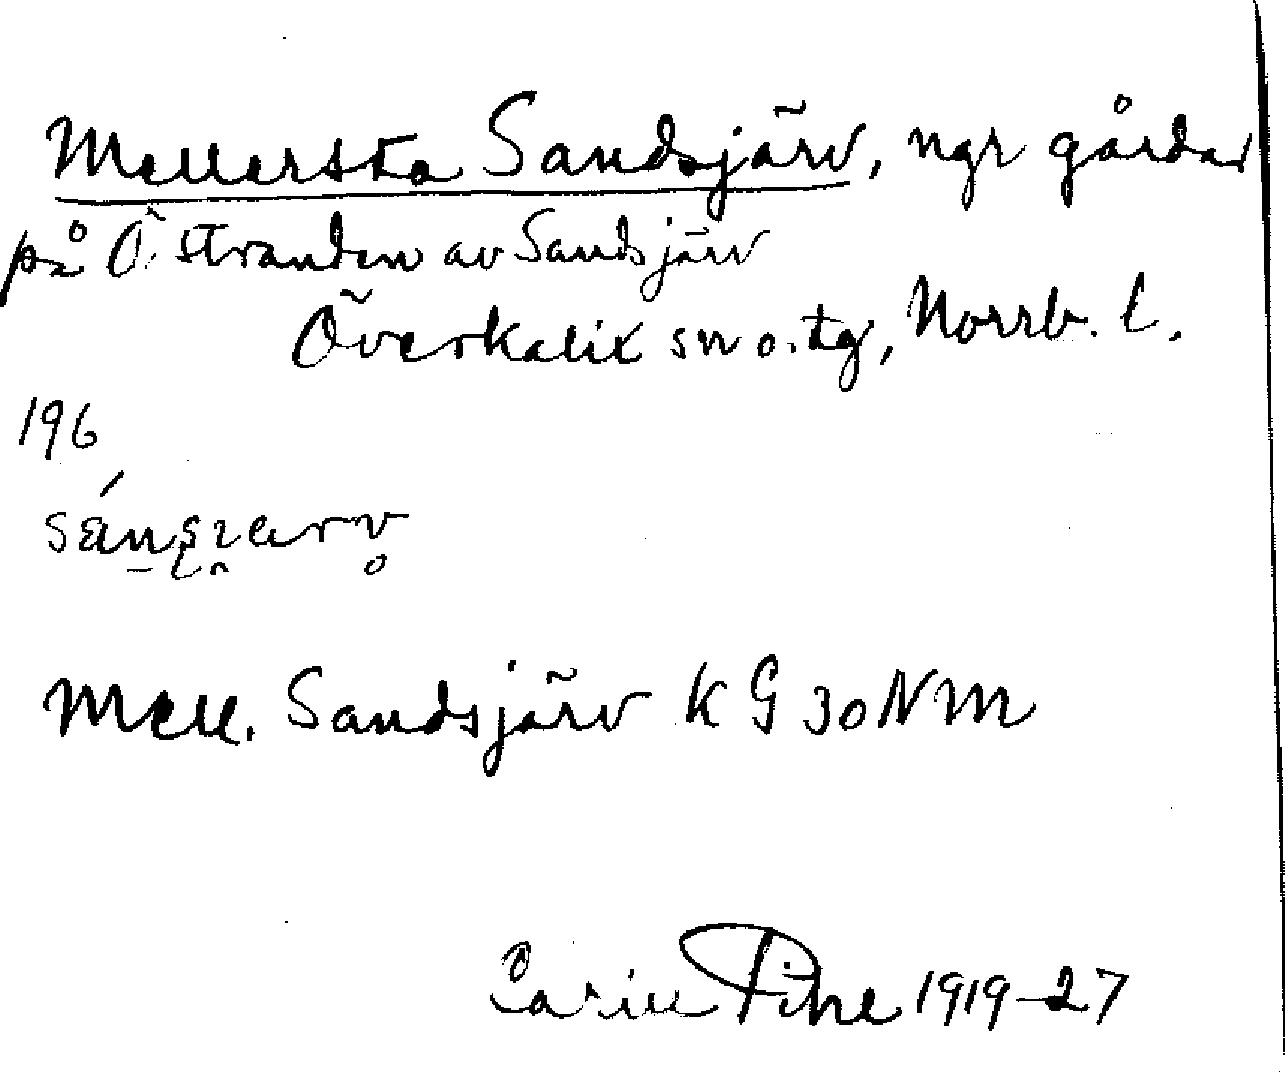 Mellersta Sandsjärv, ngr gårdar
på Ö. stranden av Sandsjärv
Överkalix sn o. tg, Norrb. l.
196
Mell. Sandsjärv KG 30 NM
Carin Pihl 1919-27